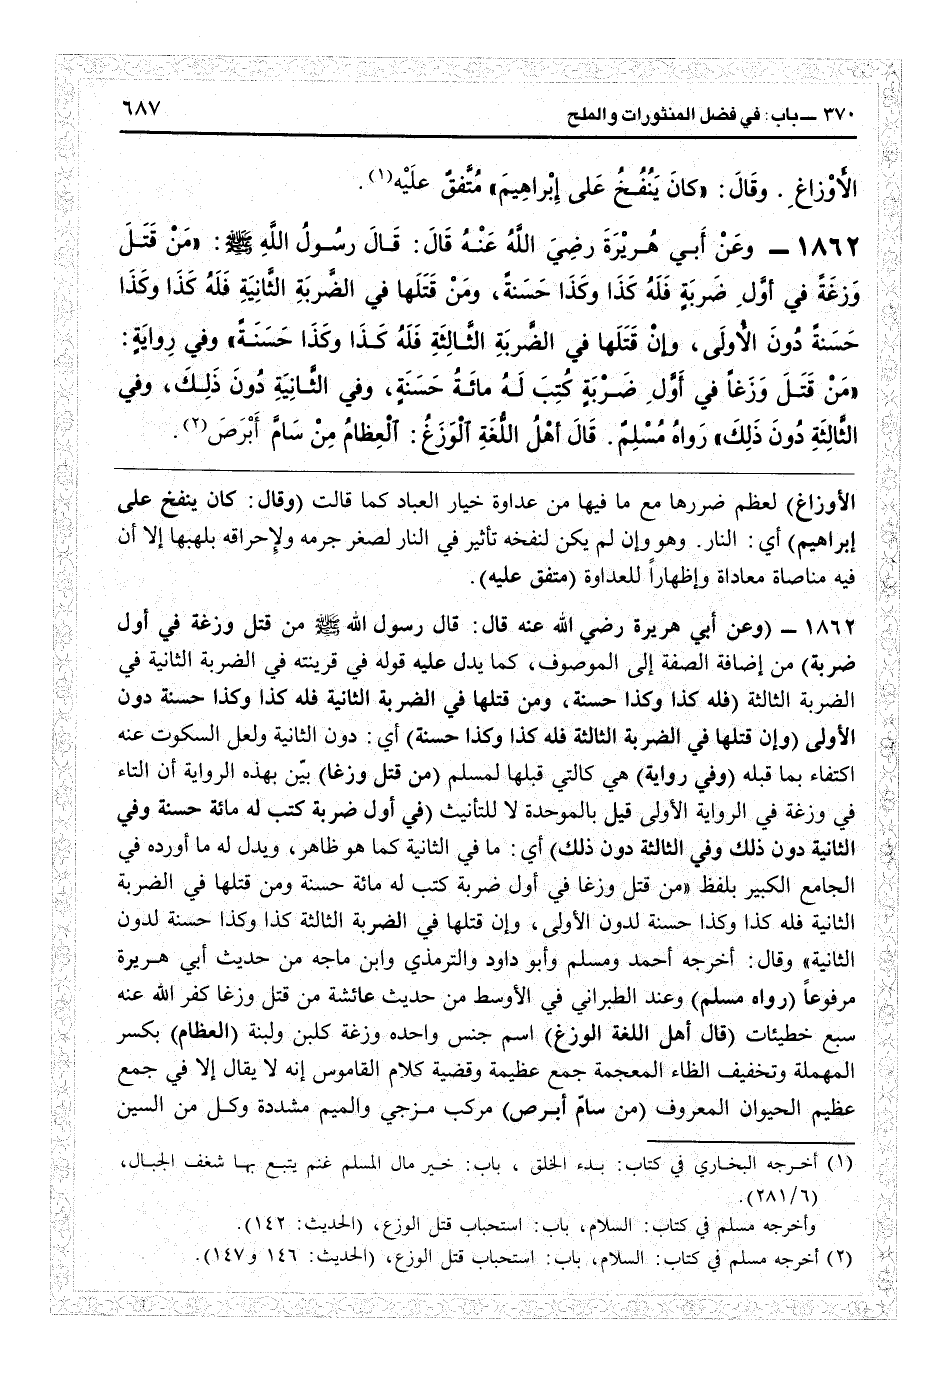 ٣٧٠ ـ باب: في فضل المنثورات والملح ٦٨٧
الْأَوْزاغِ. وقَالَ: «كانَ يَنْفُخُ عَلى إبْراهِيمَ» مُتَّفقٌ عليْهِ(١).
١٨٦٢ ـ وعَنْ أَبـي هُـريْرَةَ رضِيَ اللَّهُ عَنْهُ قَالَ: قَـالَ رسُـولُ اللَّهِ ﷺ: «مَنْ قَتَـلَ
وَزغَةً في أوَّلِ ضَربَةٍ فَلَهُ كَذَا وكَذَا حَسَنةً، ومَنْ قَتَلَها في الضَّربَةِ الثَّانِيَةِ فَلَهُ كَذَا وكَذَا
حَسَنةً دُونَ الْأُولى، وإنْ قَتَلَها في الضَّربَةِ الثَّـالِثَةِ فَلَهُ كَـذَا وكَذَا حَسَنَـةً» وفي رِوايَةٍ:
«مَنْ قَتَـلَ وَزَغاً في أَوَّلِ ضَـرْبَةٍ كُتِبَ لَـهُ مائَـةُ حَسَنَةٍ، وفي الثَّـانِيَةِ دُونَ ذَلِـكَ، وفي
الثَّالِثَةِ دُونَ ذَلِكَ» رَواهُ مُسْلِمٌ. قَالَ أهْلُ اللُّغَةِ ٱلْوَزَغُ: ٱلْعِظامُ مِنْ سَامَّ أَبْرَصَ(٢).
الأوزاغ) لعظم ضررها مع ما فيها من عداوة خيار العباد كما قالت (وقال: كان ينفخ على
إبراهيم) أي: النار. وهو وإن لم يكن لنفخه تأثير في النار لصغر جرمه ولإحراقه بلهبها إلا أن
فيه مناصاة معاداة وإظهاراً للعداوة (متفق عليه).
١٨٦٢ ـ (وعن أبي هريرة رضي الله عنه قال: قال رسول الله ﷺ من قتل وزغة في أول
ضربة) من إضافة الصفة إلى الموصوف، كما يدل عليه قوله في قرينته في الضربة الثانية في
الضربة الثالثة (فله كذا وكذا حسنة، ومن قتلها في الضربة الثانية فله كذا وكذا حسنة دون
الأولى (وإن قتلها في الضربة الثالثة فله كذا وكذا حسنة) أي: دون الثانية ولعل السكوت عنه
اكتفاء بما قبله (وفي رواية) هي كالتي قبلها لمسلم (من قتل وزغا) بيّن بهذه الرواية أن التاء
في وزغة في الرواية الأولى قيل بالموحدة لا للتأنيث (في أول ضربة كتب له مائة حسنة وفي
الثانية دون ذلك وفي الثالثة دون ذلك) أي: ما في الثانية كما هو ظاهر، ويدل له ما أورده في
الجامع الكبير بلفظ «من قتل وزغا في أول ضربة كتب له مائة حسنة ومن قتلها في الضربة
الثانية فله كذا وكذا حسنة لدون الأولى، وإن قتلها في الضربة الثالثة كذا وكذا حسنة لدون
الثانية» وقال: أخرجه أحمد ومسلم وأبو داود والترمذي وابن ماجه من حديث أبي هـريرة
مرفوعاً (رواه مسلم) وعند الطبراني في الأوسط من حديث عائشة من قتل وزغا كفر الله عنه
سبع خطيئات (قال أهل اللغة الوزغ) اسم جنس واحده وزغة كلبن ولبنة (العظام) بكسر
المهملة وتخفيف الظاء المعجمة جمع عظيمة وقضية كلام القاموس إنه لا يقال إلا في جمع
عظيم الحيوان المعروف (من سامّ أبـرص) مركب مـزجي والميم مشددة وكـل من السين
(١) أخـرجه البخـاري في كتاب: بـدء الخلق، باب: خـير مال المسلم غنم يتبـع بهـا شغف الجبـال،
(٢٨١/٦).
وأخرجه مسلم في كتاب: السلام، باب: استحباب قتل الوزع، (الحديث: ١٤٢).
(٢) أخرجه مسلم في كتاب: السلام، باب: استحباب قتل الوزع، (الحديث: ١٤٦ و١٤٧).